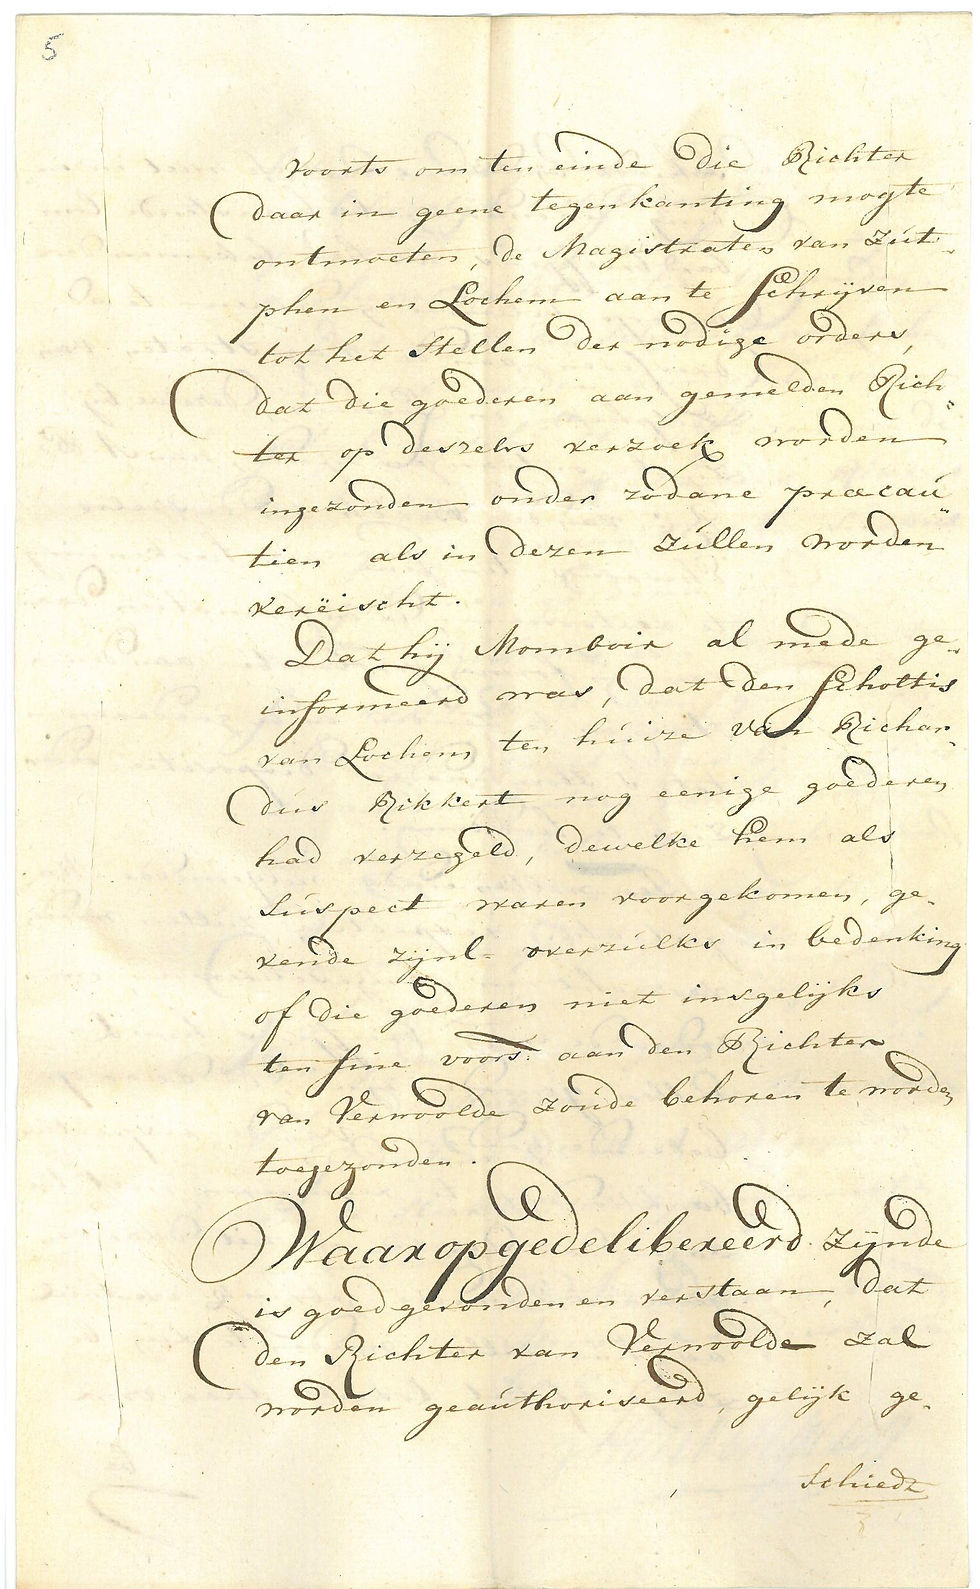 5
Voorts om ten einde die Richter
daar in geene tegenkanting mogte
ontmoeten, de Magistraten van Zút-
phen en Lochem aan te Schrijven
tot het Stellen der nodige orders,
dat die goederen aan gemelden Rich„
ter op deszelvs verzoek worden
ingezonden onder zodane præcaú„
tien als in dezen zúllen worden
vereischt.
Dat hij Momboir al mede ge„
informeerd was, dat den Scholtis
van Lochem ten húize van Richar„
dús Rikkert nog eenige goederen
had verzegeld, dewelke hem als
Súspect waren voorgekomen, ge-
vende zijnl- overzúlks in bedenking
of die goederen niet insgelijks
ten fine voors: aan den Richter
van Verwoolde zoúde behoren te worden
toegezonden.
Waar op gedelibereerd zijnde
is goedgevonden en verstaan, dat
den Richter van Verwoolde zal
worden geaúthoriseerd, gelijk ge-
Schiedt